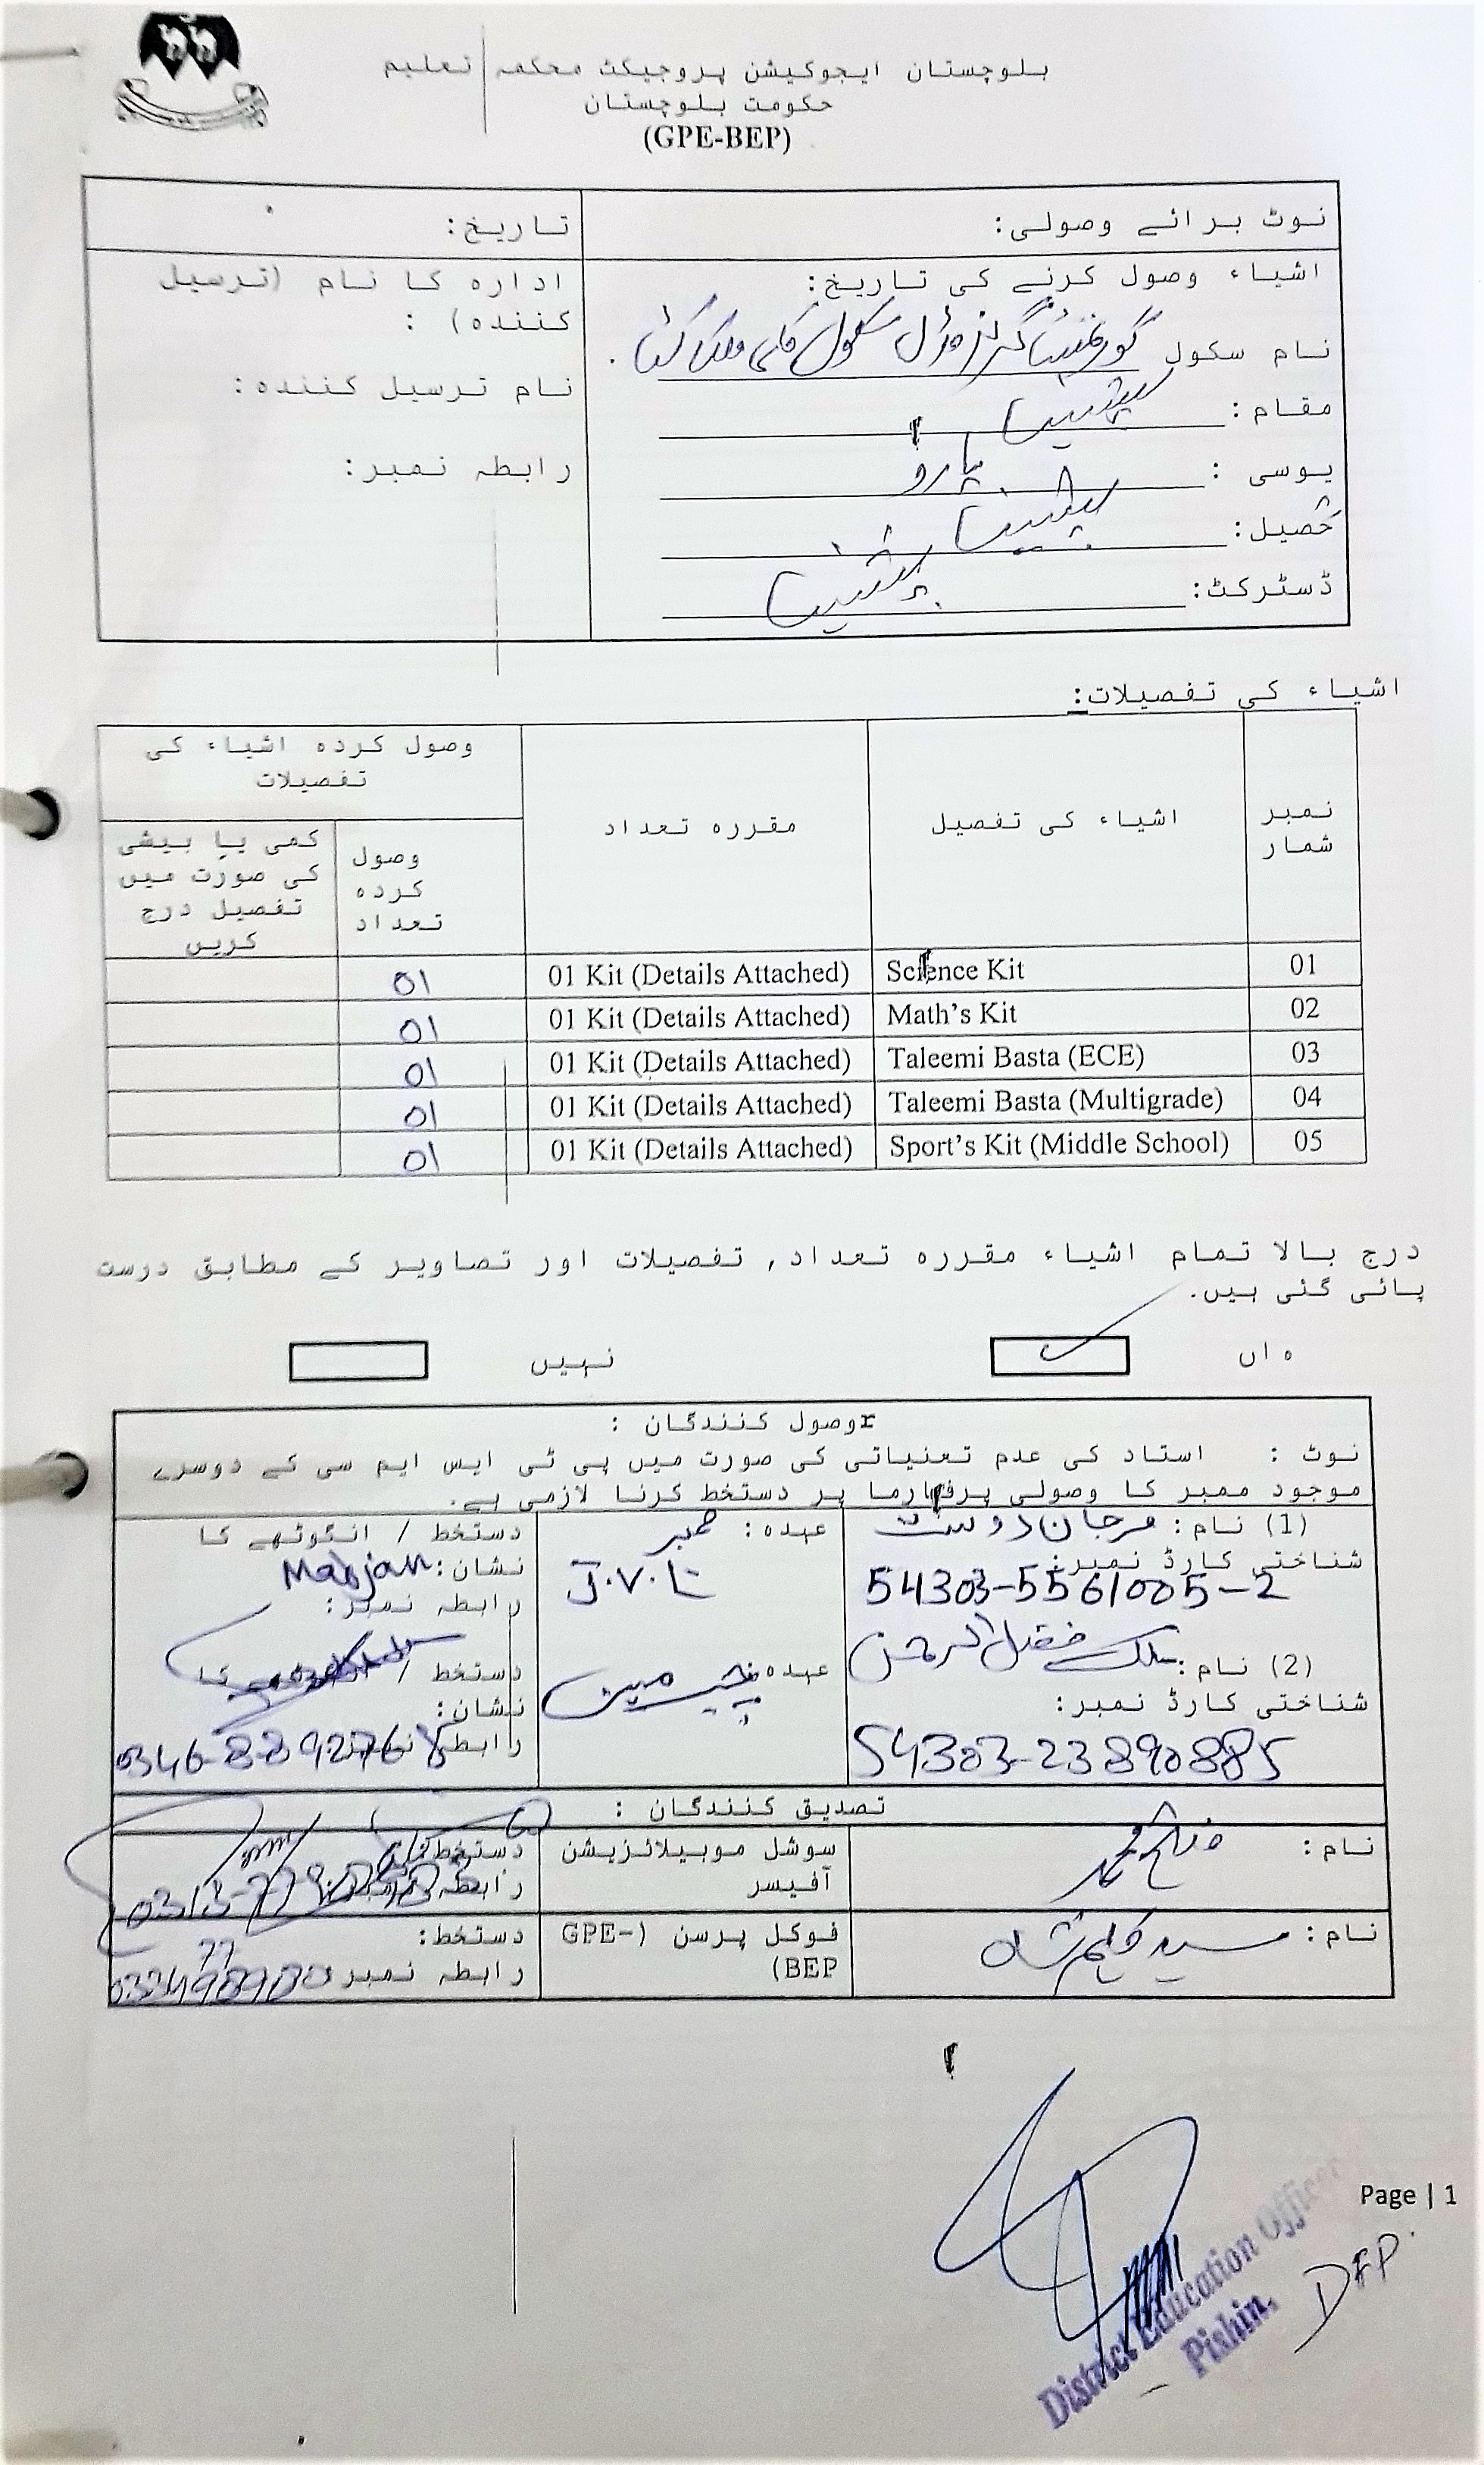 بلوچستان ایجوکیشن پروجیکٹ محکمہ تعلیم
حکومت بلوچستان
(GPE-BEP)
نوٹ برائے وصولی:
تاریخ:
اشیاء وصول کرنے کی تاریخ:
نام سکول گورنمنٹ گرلز مڈل سکول کلی ملک
مقام: پشین
یوسی :
تحصیل: پشین
ڈسٹرکٹ: پشین
ادارہ کا نام (ترسیل
کنندہ) :
نام ترسیل کنندہ:
رابطہ نمبر:
اشیاء کی تفصیلات:
نمبر شمار
اشیاء کی تفصیل
مقررہ تعداد
وصول کردہ اشیاء کی تفصیلات
وصول کردہ تعداد
کمی یا بیشی کی صورت میں تفصیل درج کریں
01 Science Kit 01 Kit (Details Attached) 01
02 Math's Kit 01 Kit (Details Attached) 01
03 Taleemi Basta (ECE) 01 Kit (Details Attached) 01
04 Taleemi Basta (Multigrade) 01 Kit (Details Attached) 01
05 Sport's Kit (Middle School) 01 Kit (Details Attached) 01
درج بالا تمام اشیاء مقررہ تعداد, تفصیلات اور تصاویر کے مطابق درست
پائی گئی ہیں.
ہاں
نہیں
rوصول کنندگان :
نوٹ : استاد کی عدم تعنیاتی کی صورت میں پی ٹی ایس ایم سی کے دوسرے
موجود ممبر کا وصولی پرفارما پر دستخط کرنا لازمی ہے.
(1) نام: مرجان دوست
شناختی کارڈ نمبر:
54303-5561005-2
عہدہ: ممبر
J.V.T
دستخط / انگوٹھے کا
نشان: Marjan
رابطہ نمبر:
(2) نام: ملک فضل الرحمن
شناختی کارڈ نمبر:
54303-23890885
عہدہ: چیرمین
دستخط / انگوٹھے کا
نشان:
رابطہ نمبر:
تصدیق کنندگان :
نام:
سوشل موبیلائزیشن
آفیسر
دستخط:
رابطہ نمبر
نام: سید کلیم شاہ
فوکل پرسن (GPE-
BEP)
دستخط:
رابطہ نمبر
Page | 1
District Education Officer
Pishin.